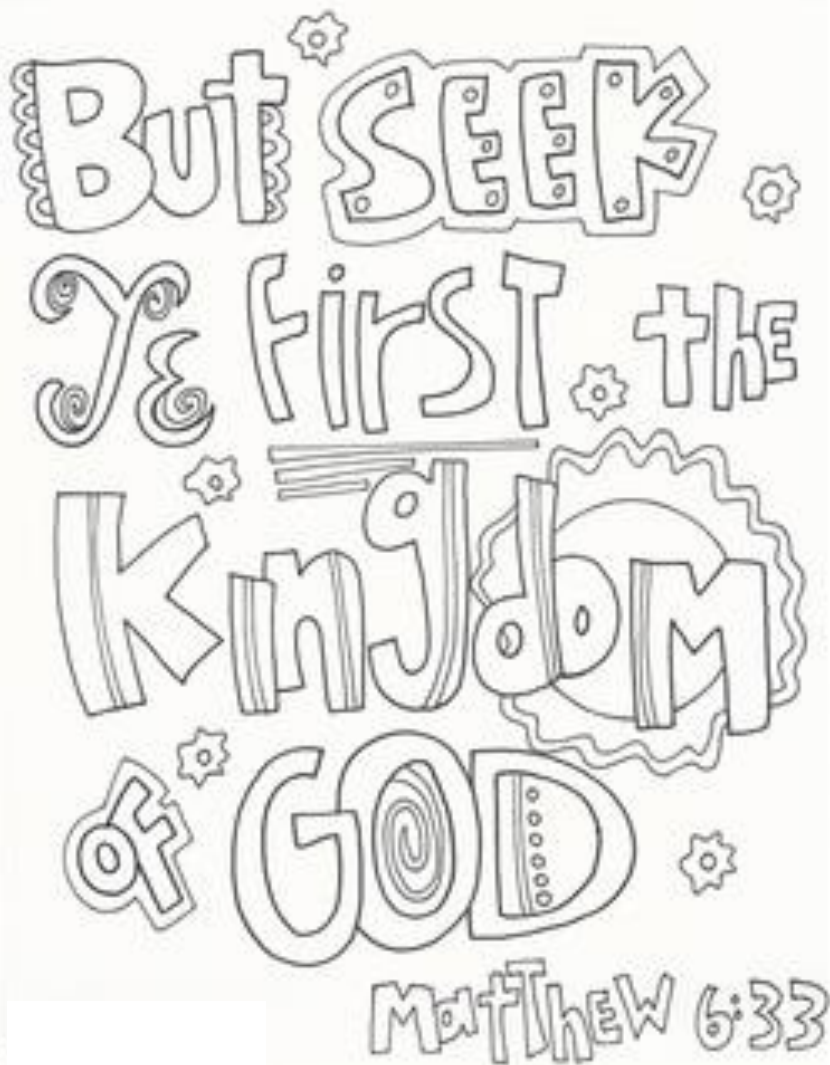 But SEEK
Ye first the
Kingdom
of GOD
Matthew 6:33